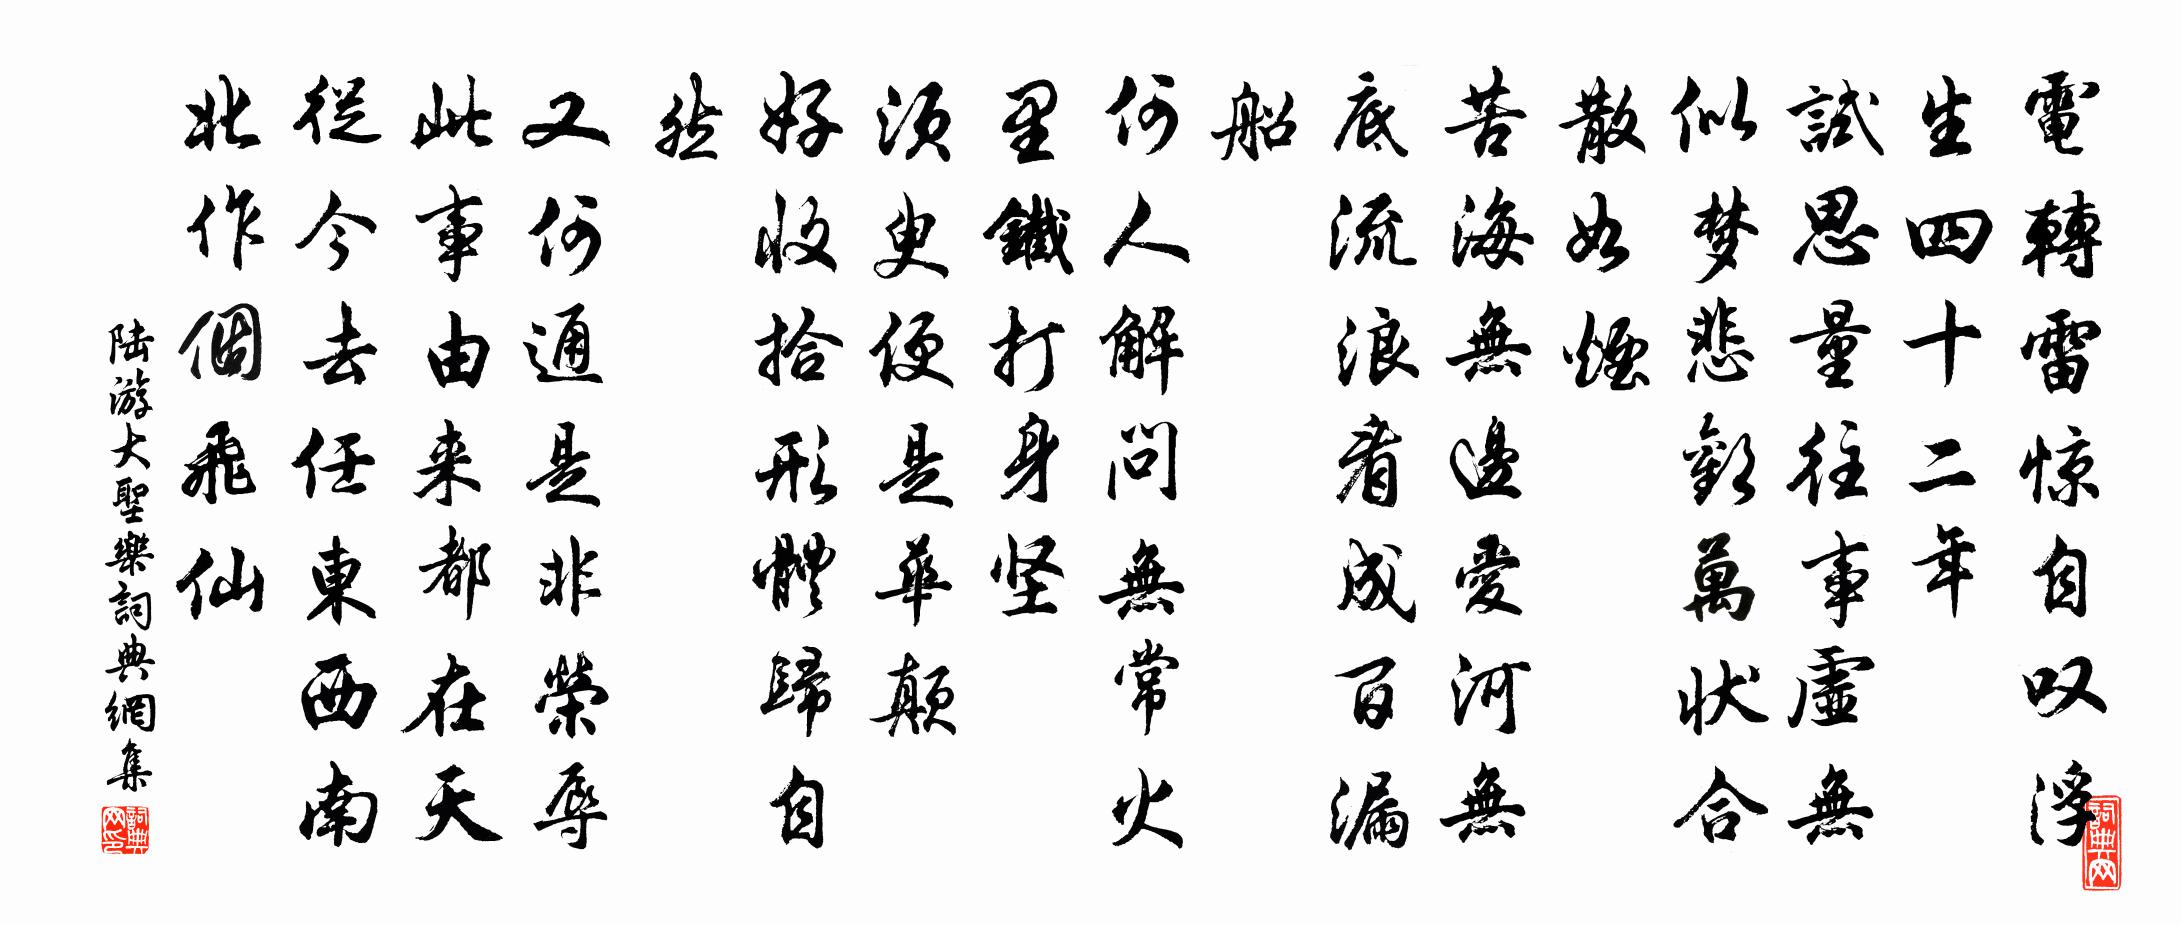 電轉雷惊自叹浮
生四十二年
試思量往事虛無
似梦悲歡萬状合
散如煙
苦海無邊愛河無
底流浪看成百漏
船
何人解問無常火
里鐵打身坚
須臾便是華顛
好收拾形體歸自
然
又何須是非榮辱
此事由来都在天
從今去任東西南
北作個飛仙
陆游大聖樂詞典網集
詞典网印
詞典网